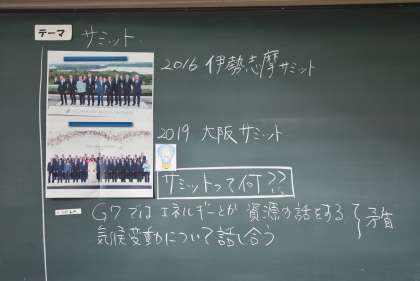 テーマ サミット
2016 伊勢志摩サミット
2019 大阪サミット
サミットって何??
G7ではエネルギーとか資源の話をする 矛盾
気候変動について話し合う